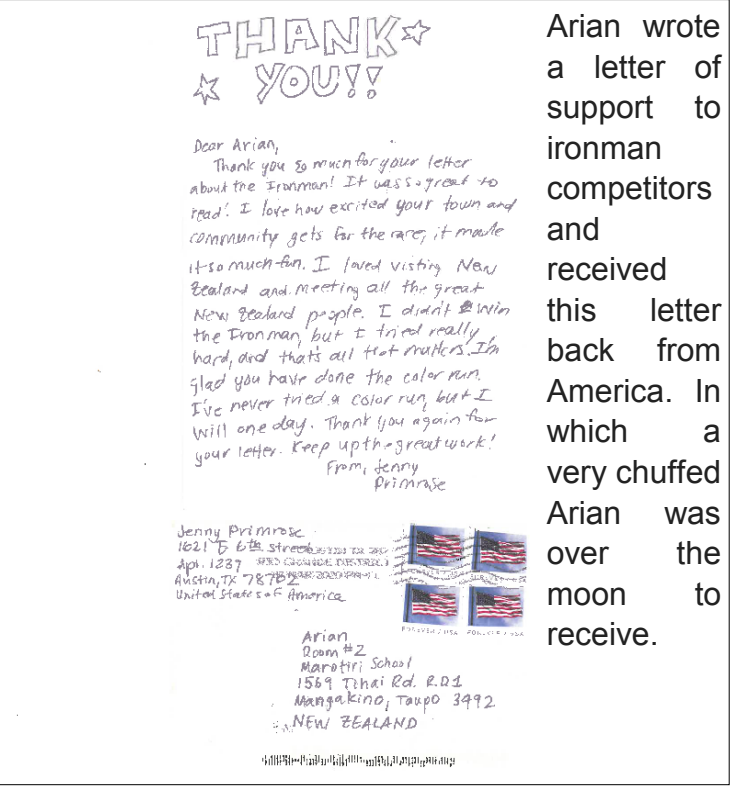 THANK
YOU!!
Dear Arian,
Thank you so much for your letter
about the Ironman! It was so great to
read! I love how excited your town and
community gets for the race, it made
it so much fun. I loved visting New
Zealand and meeting all the great
New Zealand people. I didn't win
the Ironman, but I tried really
hard, and that's all that matters. I'm
glad you have done the color run.
I've never tried a color run, but I
will one day. Thank you again for
your letter. Keep up the great work!
From, Jenny
Primrose
Jenny Primrose
1621 E 6th street
Apt. 1237
Austin, TX 78702
United States of America
FOREVER / USA FOREVER / USA
Arian
Room #2
Marotiri School
1569 Tihai Rd. R.D1
Mangakino, Taupo 3492
NEW ZEALAND
Arian wrote
a letter of
support to
ironman
competitors
and
received
this letter
back from
America. In
which a
very chuffed
Arian was
over the
moon to
receive.